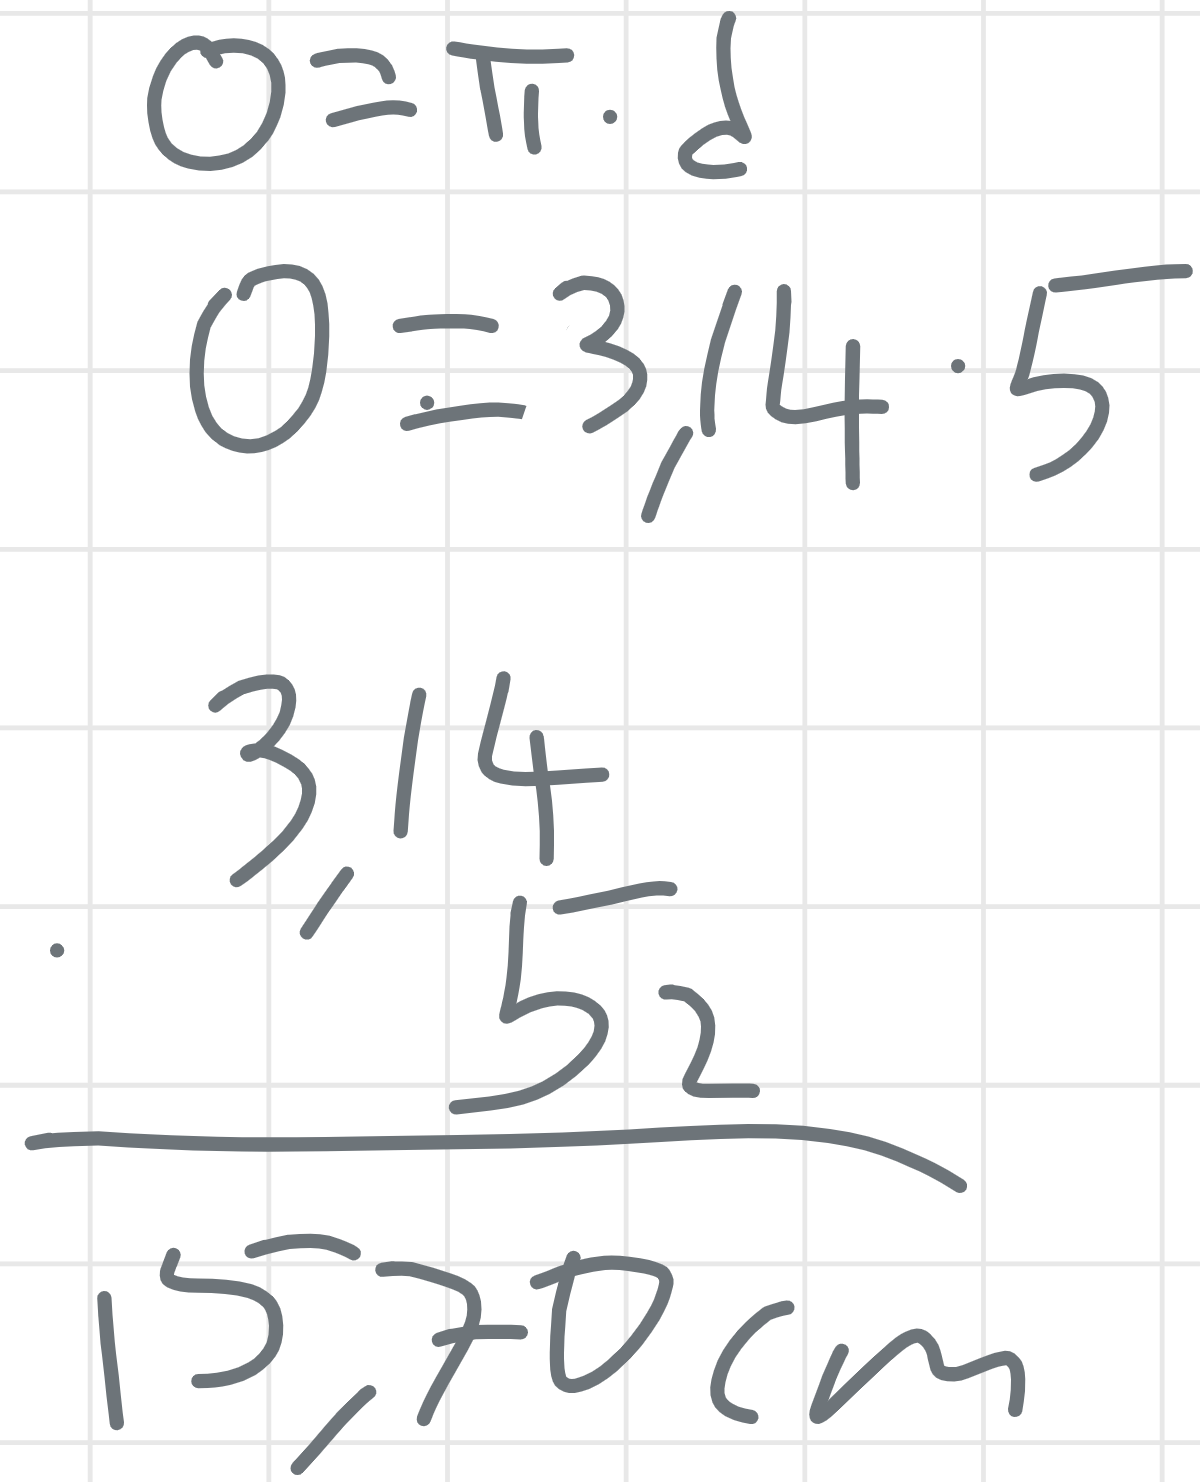 O = π · d
O = 3,14 · 5
3,14
· 5 2
15,70 cm